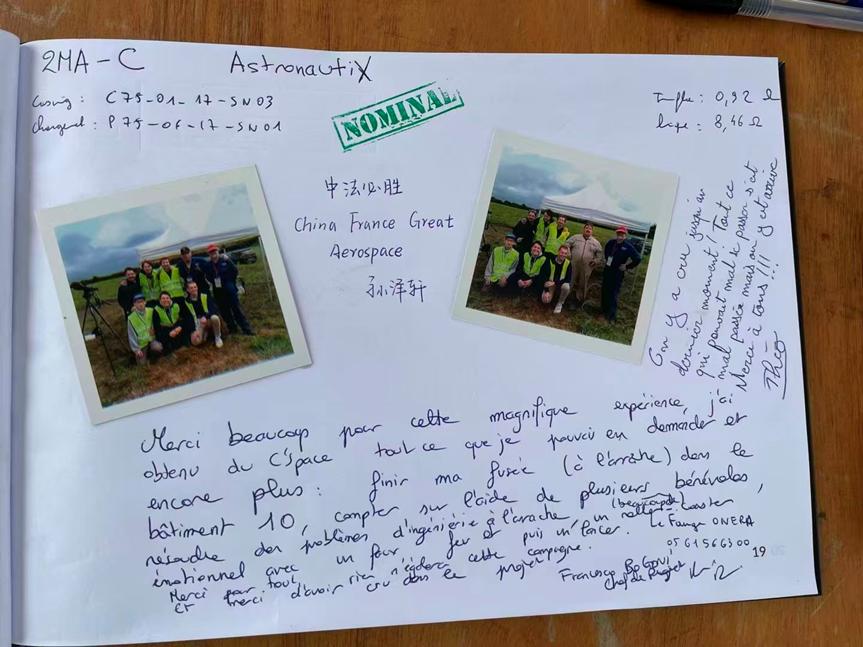 2MA-C
AstronautiX
Casing: C75-01-17-SN03
Chargement: P75-06-17-SN01
NOMINAL
: 0,92 Ω
: 8,46 Ω
中法必胜
China France Great
Aerospace
孙泽轩
On y a cru jusqu'au
dernier moment! Tout ce
qui pouvait mal se passer s'est
mal passée mais on y est arrivé
Merci à tous!!!
Théo
Merci beaucoup pour cette magnifique expérience, j'ai
obtenu du C'space tout ce que je pouvais en demander et
encore plus: finir ma fusée (à l'arrache) dans le
bâtiment 10, compter sur l'aide de plusieurs bénévoles,
(beaucoup de)
résoudre des problèmes d'ingénierie à l'arrache, un roller-coaster
émotionnel avec un four, fer et puis un lancer.
rien n'égalera cette campagne.
Merci pour tout,
et merci d'avoir cru dans le projet
Le Fauga ONERA
0561566300
Francesco
Chef de Projet
19